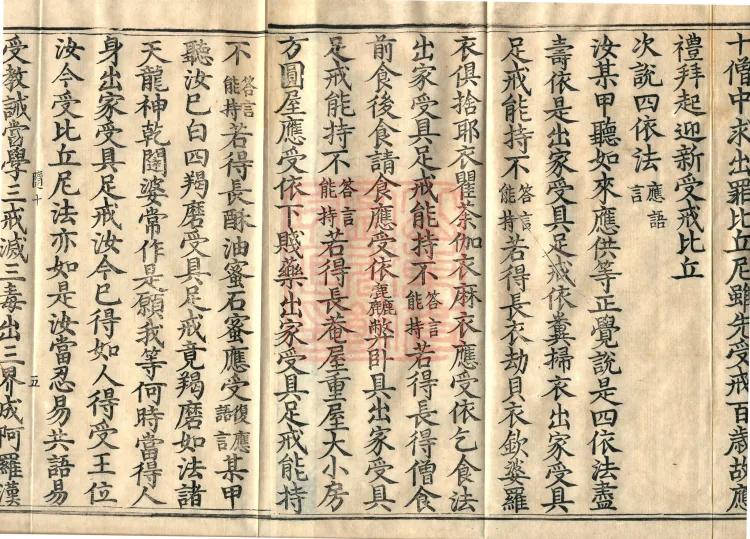 十僧中求出罪比丘尼雖先受戒百歲故應
禮拜起迎新受戒比丘
次說四依法應語言
汝某甲聽如來應供等正覺說是四依法盡
壽依是出家受具足戒依糞掃衣出家受具
足戒能持不答言能持若得長衣劫貝衣欽婆羅
衣俱捨耶衣瞿荼伽衣麻衣應受依乞食法
出家受具足戒能持不答言能持若得長得僧食
前食後食請食應受依麁弊臥具出家受具
足戒能持不答言能持若得長菴屋重屋大小房
方圓屋應受依下賤藥出家受具足戒能持
不答言能持若得長酥油蜜石蜜應受復應語言某甲
聽汝已白四羯磨受具足戒竟羯磨如法諸
天龍神乾闥婆常作是願我等何時當得人
身出家受具足戒汝今已得如人得受王位
汝今受比丘尼法亦如是汝當忍易共語易
五
受教誡當學三戒滅三毒出三界成阿羅漢